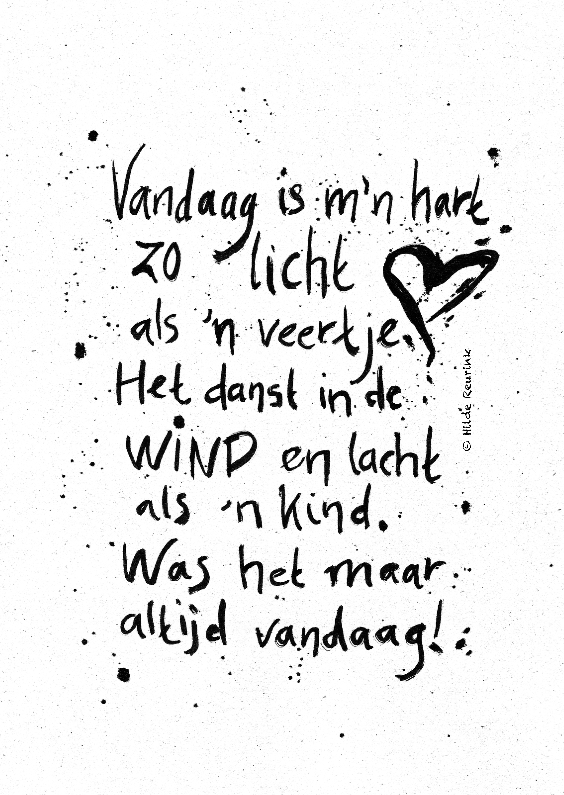 Vandaag is m'n hart
zo licht
als 'n veertje.
Het danst in de
WiND en lacht
als 'n kind.
Was het maar
altijd vandaag!
© Hilde Reurink